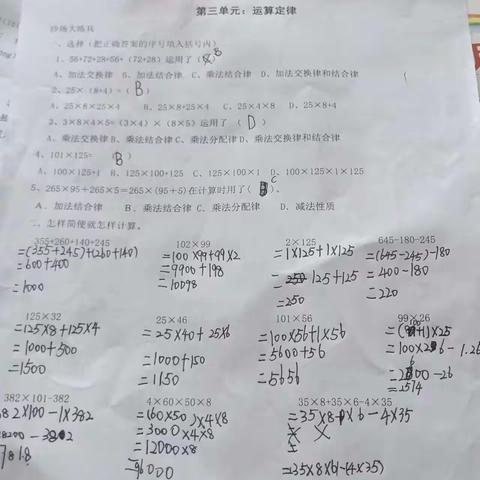 第三单元：运算定律
沙场大练兵
一、选择（把正确答案的序号填入括号内）
1、56+72+28+56+（72+28）运用了（ B
A、加法交换律 B、加法结合律 C、乘法结合律 D、加法交换律和结合律
2、25×（8+4）=（ B ）
A、25×8×25×4 B、25×8+25×4 C、25×4×8 D、25×8+4
3、3×8×4×5=（3×4）×（8×5）运用了（ D ）
A、乘法交换律 B、乘法结合律 C、乘法分配律 D、乘法交换律和结合律
4、101×125=（ B ）
A、100×125+1 B、125×100+125 C、125×100×1 D、100×125×1×125
5、265×95+265×5=265×（95+5）在计算时用了（ C ）。
A、加法结合律 B、乘法结合律 C、乘法分配律 D、减法性质
二、怎样简便就怎样计算。
355+260+140+245 102×99 2×125 645-180-245
=(355+245)+(260+140) =100×99+99×2 =1×125+1×125 =(645-245)-180
=600+400 =9900+198 = 125+125 =400-180
=1000 =10098 =250 =220
125×32 25×46 101×56 99×26
=125×8+125×4 =25×40+25×6 =100×56+1×56
=1000+500 =1000+150 =5600+56
=1500 =1150 =5656 =2574
382×101-382 4×60×50×8 35×8+35×6-4×35
382×100-1×382 =(60×50)×4×8
38200-382 =3000×4×8
=12000×8
=96000 =(35×8×6)-(4×35)